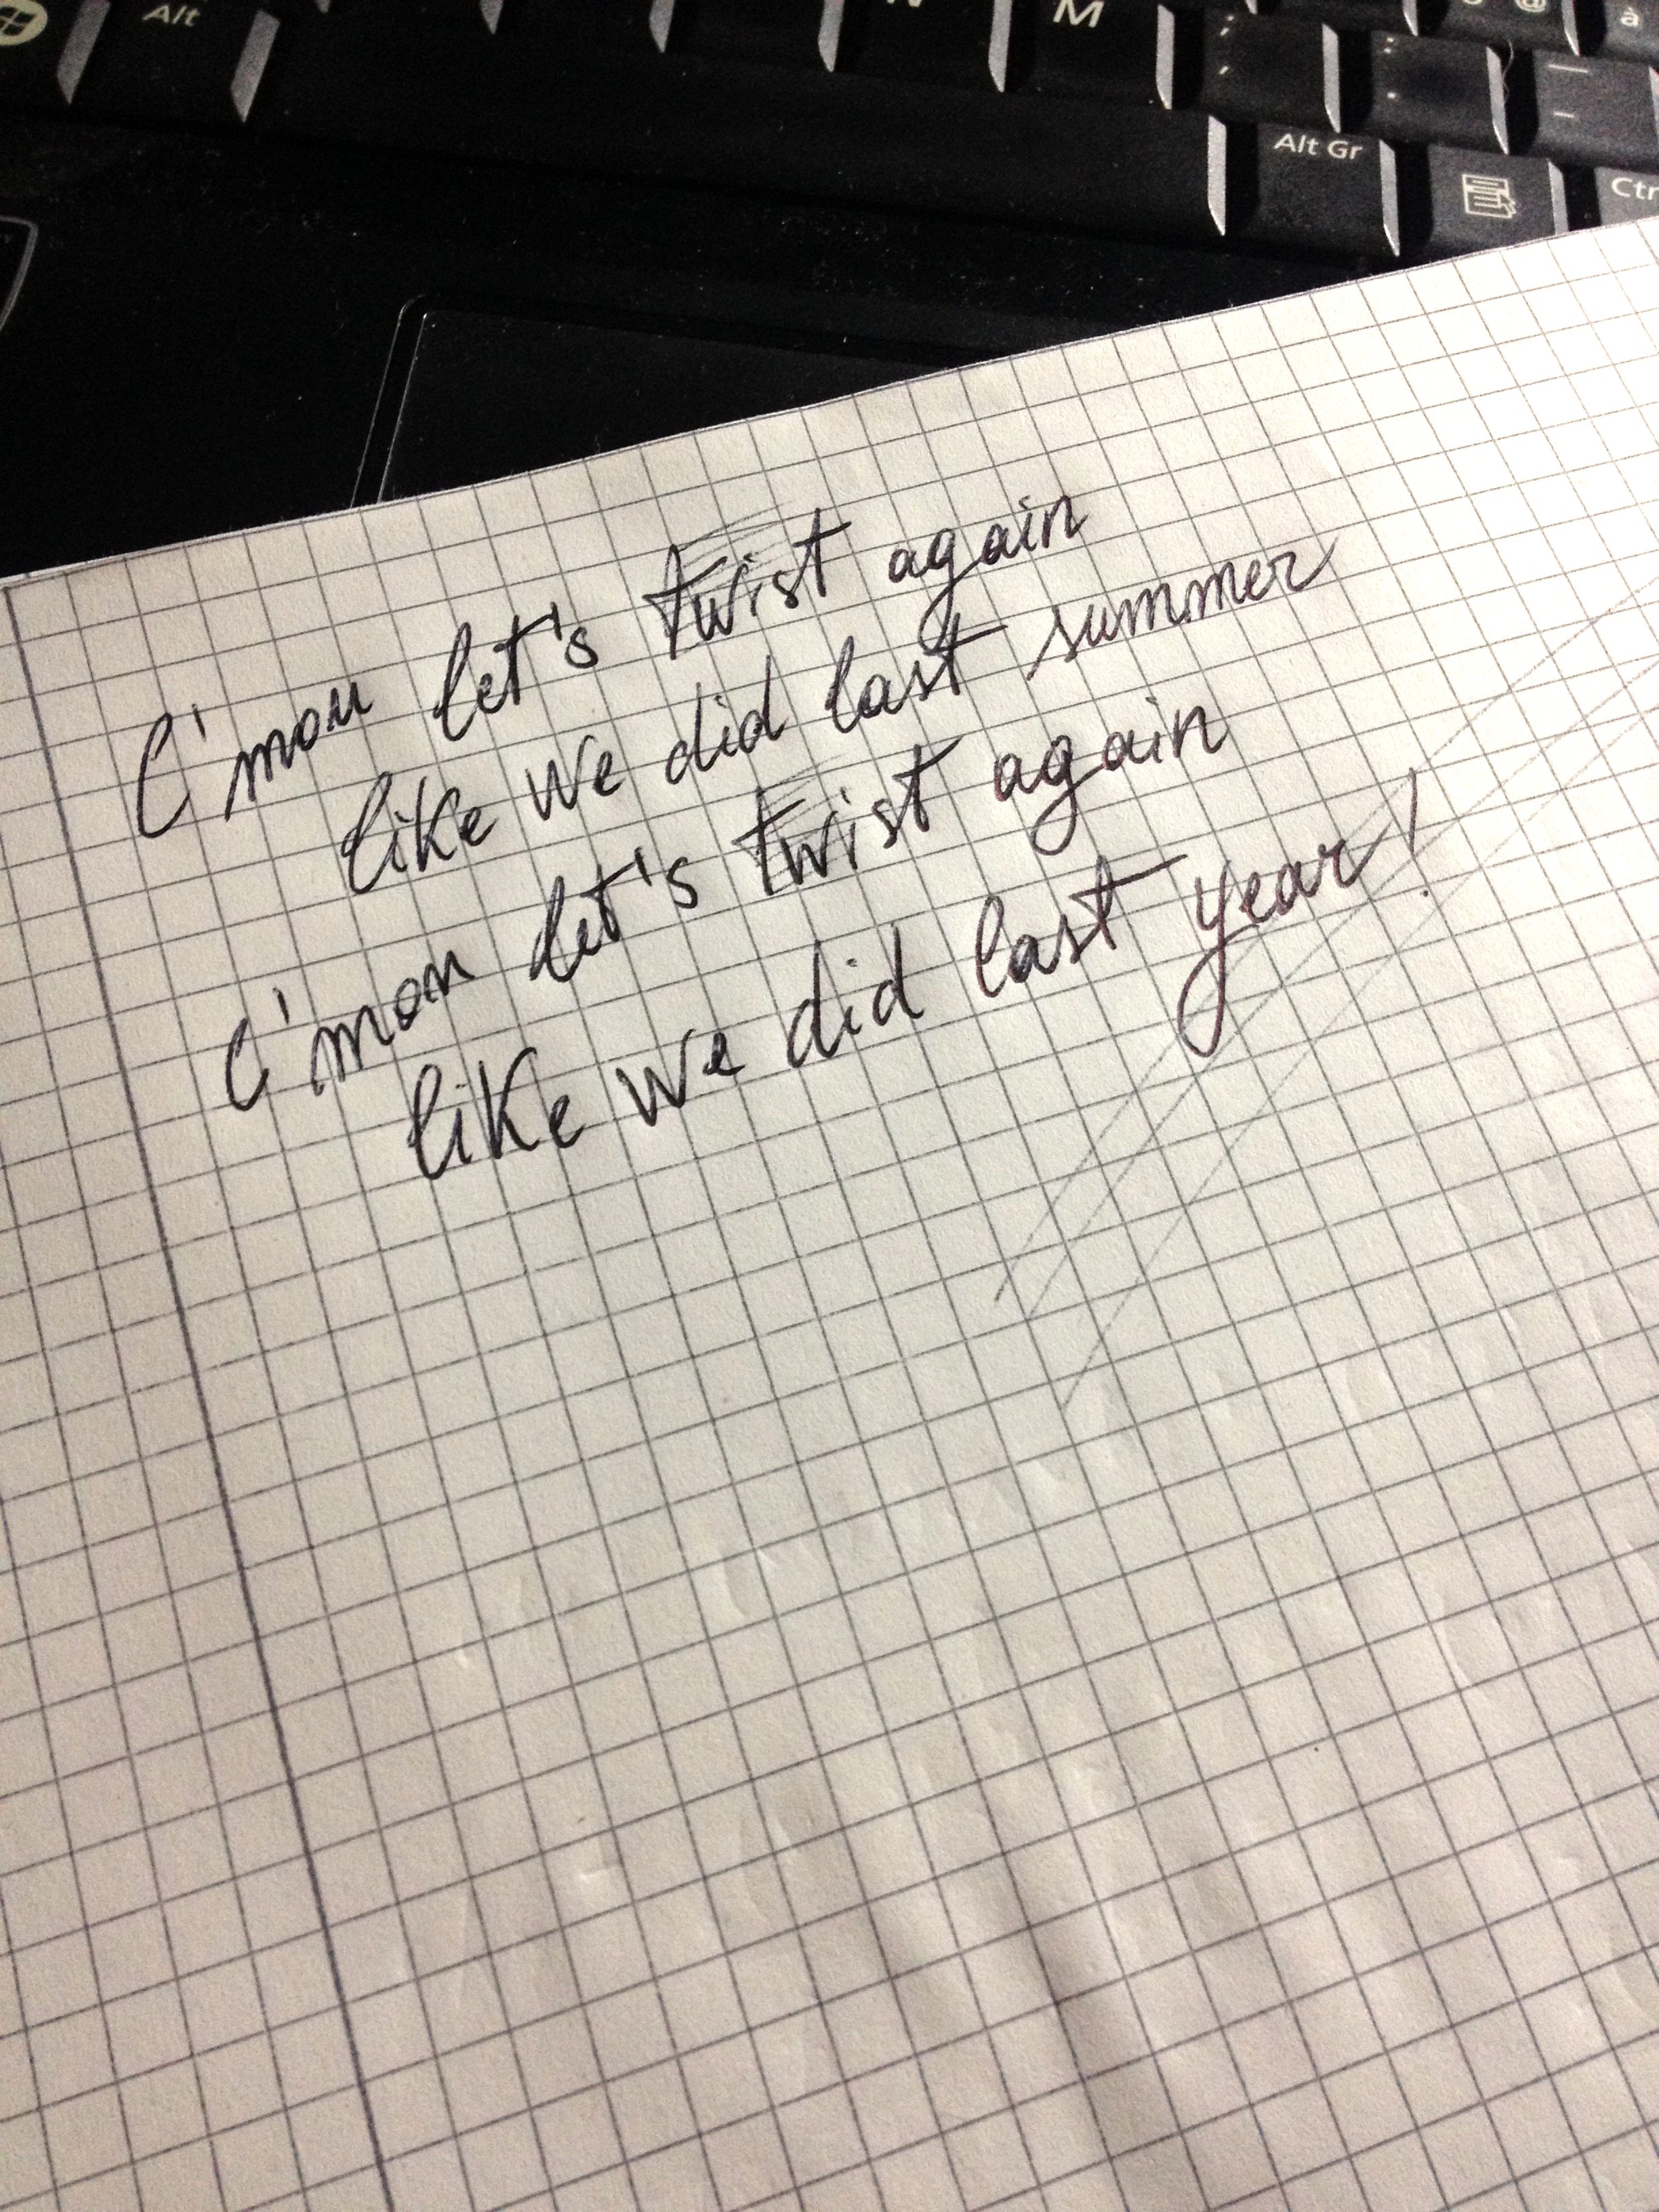 Alt
M
Alt Gr
Ctr
C'mon let's twist again
like we did last summer
C'mon let's twist again
like we did last year!